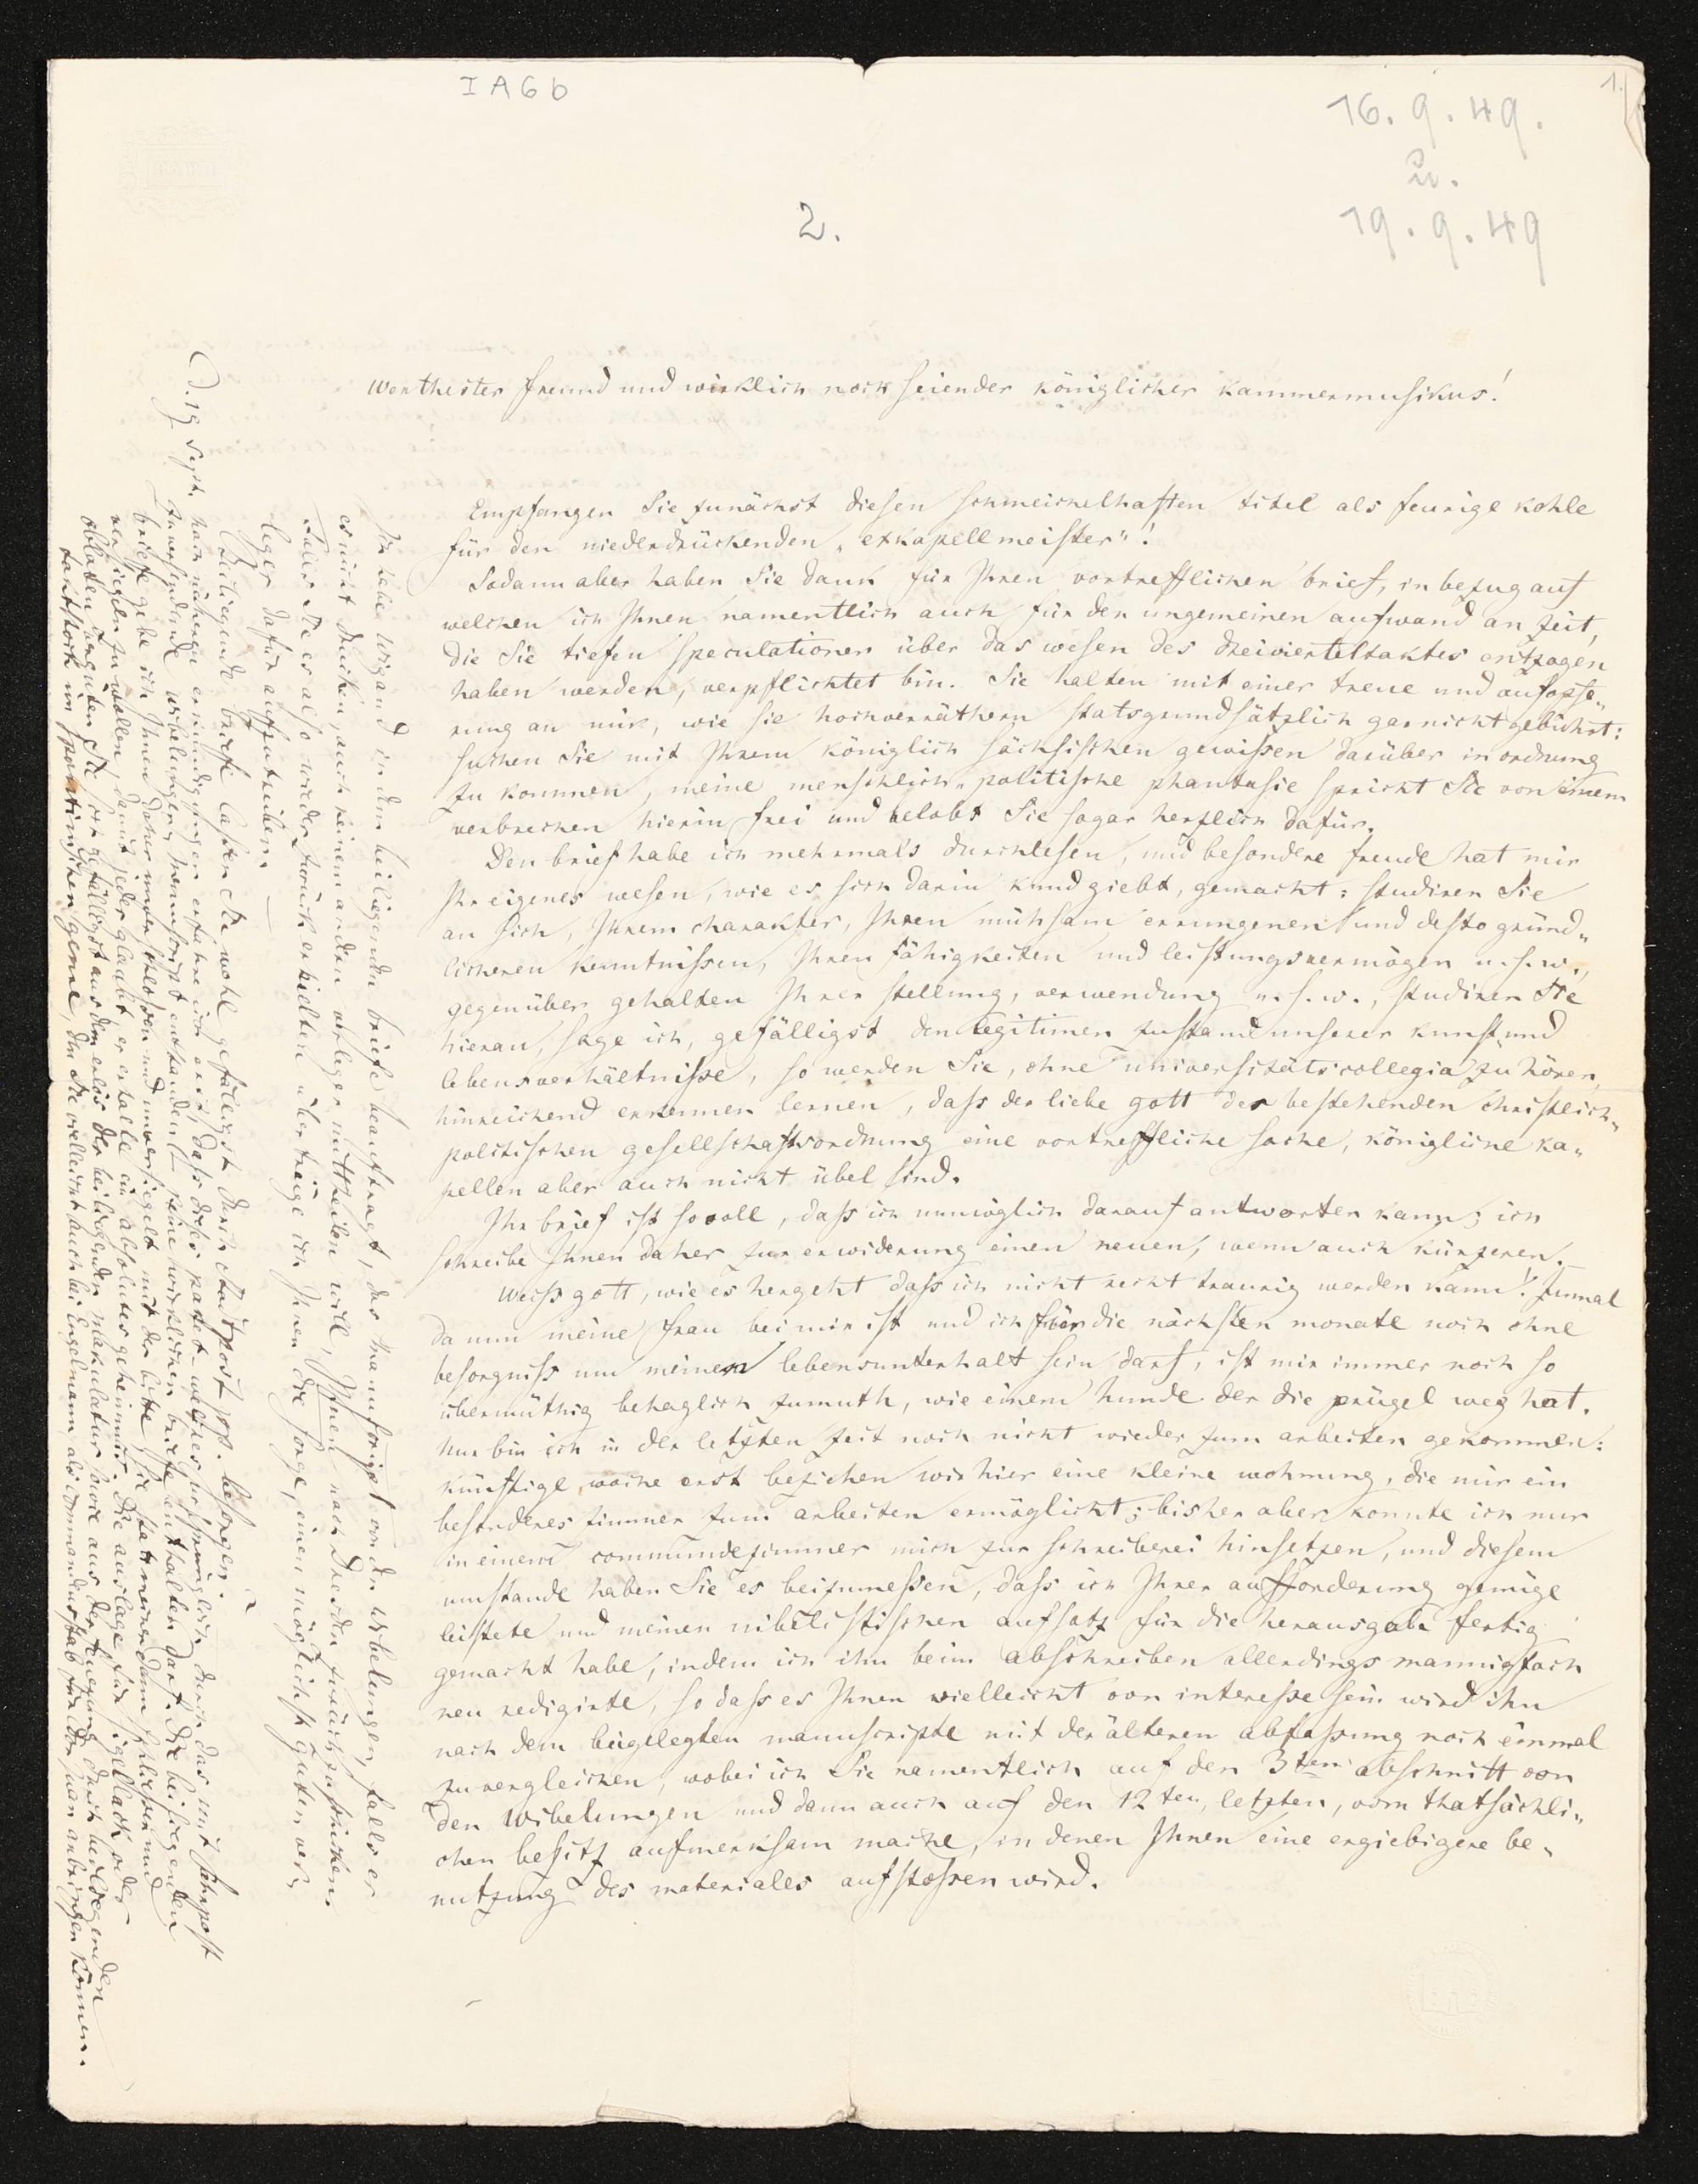 I A 6 b
1.
16. 9. 49.
u.
19. 9. 49
2.
Werthester freund und wirklich noch seiender königlicher kammermusikus!
Empfangen Sie zunächst diesen schmeichelhaften titel als feurige kohle
für den niederdrückenden „exkapellmeister"!
Sodann aber haben Sie dank für Ihren vortrefflichen brief, in bezug auf
welchen ich Ihnen namentlich auch für den ungemeinen aufwand an zeit,
die Sie tiefen speculationen über das wesen des dreivierteltaktes entzogen
haben werden, verpflichtet bin. Sie halten mit einer treue und aufopfe„
rung an mir, wie sie hochverräthern statsgrundsätzlich gar nicht gebührt:
suchen Sie mit Ihrem königlich sächsischen gewissen darüber in ordnung
zu kommen, meine menschlich-politische phantasie spricht Sie von einem
verbrechen hierin frei und belobt Sie sogar herzlich dafür.
Den brief habe ich mehrmals durchlesen, und besondere freude hat mir
Ihr eigenes wesen, wie es sich darin kund giebt, gemacht: studiren Sie
an sich, Ihrem charakter, Ihren mühsam errungenen und desto gründ„
licheren kenntnissen, Ihren fähigkeiten und leistungsvermögen u. s. w.,
gegenüber gehalten Ihrer stellung, verwendung u. s. w., studiren Sie
hieran, sage ich, gefälligst den legitimen zustand unserer kunst und
lebensverhältnisse, so werden Sie, ohne universitätscollegia zu hören,
hinreichend erkennen lernen, dass der liebe gott der bestehenden christlich„
politischen gesellschaftsordnung eine vortreffliche sache, königliche ka„
pellen aber auch nicht übel sind.
Ihr brief ist so voll, dass ich unmöglich darauf antworten kann; ich
schreibe Ihnen daher zur erwiderung einen neuen, wenn auch kürzeren.
Weiss gott, wie es hergeht dass ich nicht recht traurig werden kann! Zumal
da nun meine frau bei mir ist und ich für die nächsten monate noch ohne
besorgniss um meinen lebensunterhalt sein darf, ist mir immer noch so
übermüthig behaglich zumuth, wie einem hunde der die prügel weg hat.
Nur bin ich in der letzten zeit noch nicht wieder zum arbeiten gekommen:
künftige woche erst beziehen wir hier eine kleine wohnung, die mir ein
besonderes zimmer zum arbeiten ermöglicht; bisher aber konnte ich nur
in einem communezimmer mich zur schreiberei hinsetzen, und diesem
umstande haben Sie es beizumessen, dass ich Ihrer aufforderung genüge
leistete und meinen nibelistischen aufsatz für die herausgabe fertig
gemacht habe, indem ich ihn beim abschreiben allerdings mannigfach
neu redigirte, so dass es Ihnen vielleicht von interesse sein wird ihn
nach dem beigelegten manuscripte mit der älteren abfassung noch einmal
zu vergleichen, wobei ich Sie namentlich auf den 3ten abschnitt von
den Wibelungen und dann auch auf den 12ten, letzten, vom thatsächli„
chen besitz aufmerksam mache, in denen Ihnen eine ergiebigere be„
nutzung des materiales aufstossen wird.
Ich habe Wigand in dem beiliegenden briefe beauftragt, das manuscript von den Wibelungen, falls er
es nicht drucken, auch keinem anderen verleger mittheilen will, Ihnen nach Dresden zurückzuschicken.
Falls Sie es also wieder zurück erhielten übertrage ich Ihnen die sorge, einen möglichst guten ver„
leger dafür aufzutreiben.
Beiliegende briefe lassen Sie wohl gefälligst durch Stadtpost besorgen.
D. 19 Sept. Nach näheren erkundigungen erfahre ich erst, dass dieses paket – welches ursprünglich durch das mit fahrpost
zu versendende Wibelungen manuscript entstanden – keine wirklichen briefe enthalten darf. Die beiliegenden
briefe gebe ich Ihnen daher unverschlossen und unversiegelt mit der bitte sie statt meiner dann schliessen und
versiegeln zu wollen, damit jeder glaubt, er erhalte ein absolutes geheimniss. Die auslage für siegellack oder
oblaten vergüten Sie sich gefälligst aus dem erlös der beiliegenden makulatur sowie aus der zugung darin herliegenden
taktstock im spontinischen genre, den Sie vielleicht auch bei Engelmann als commandostab für den juan anbringen können.